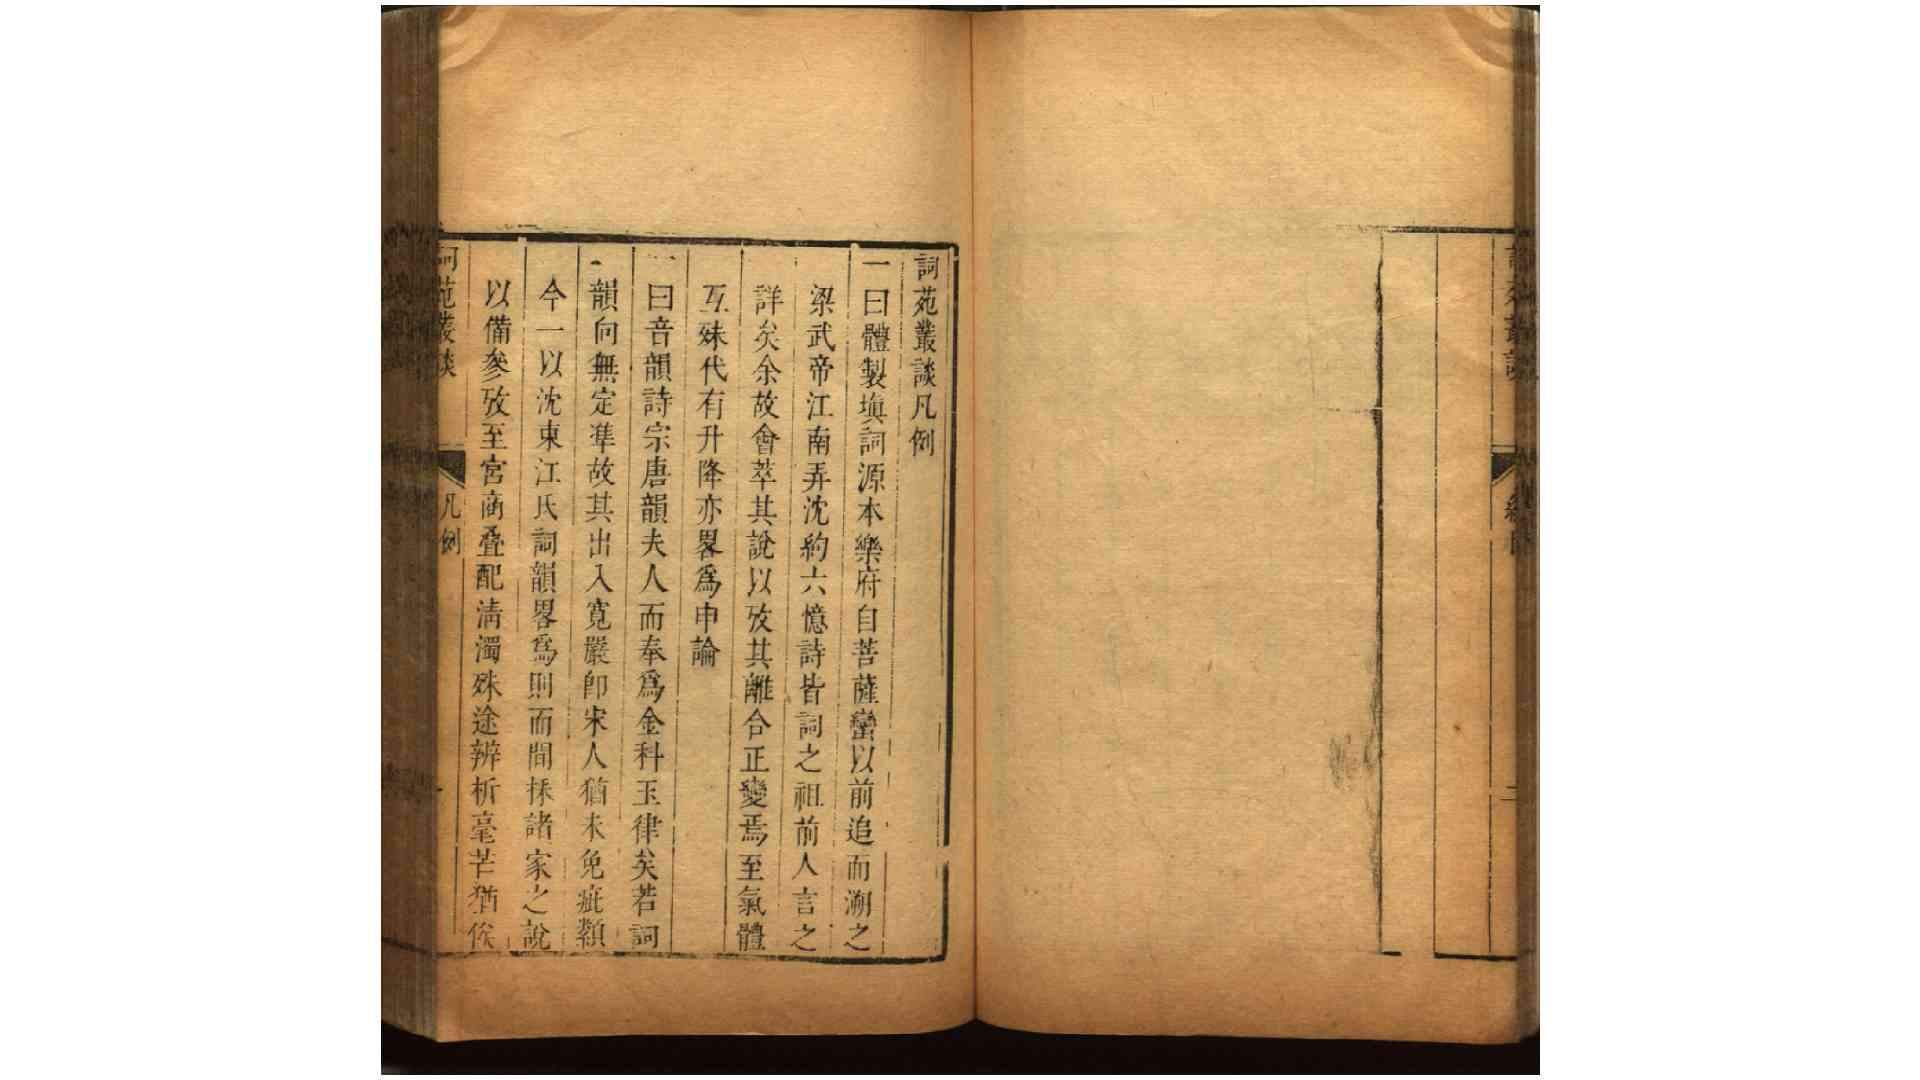 詞苑叢談凡例
一曰體製塡詞源本樂府自菩薩蠻以前追而溯之
梁武帝江南弄沈約六憶詩皆詞之祖前人言之
詳矣余故會萃其說以攷其離合正變焉至氣體
互殊代有升降亦畧爲申論
一曰音韻詩宗唐韻夫人而奉爲金科玉律矣若詞
韻向無定準故其出入寛嚴卽宋人猶未免疵纇
今一以沈東江氏詞韻畧爲則而間採諸家之說
以備參攷至宮商叠配淸濁殊途辨析毫芒猶俟
詞苑叢談 凡例